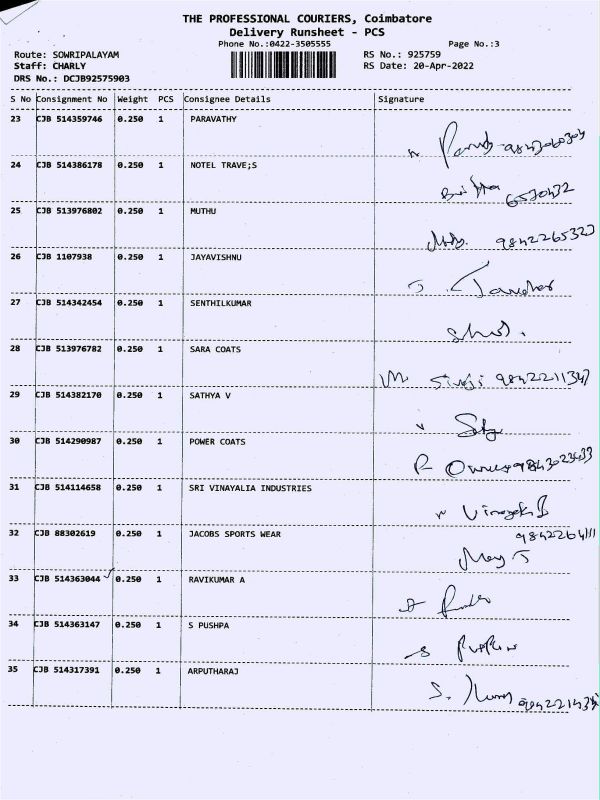 THE PROFESSIONAL COURIERS, Coimbatore
Delivery Runsheet - PCS
Phone No.:0422-3505555 Page No.:3
Route: SOWRIPALAYAM RS No.: 925759
Staff: CHARLY RS Date: 20-Apr-2022
DRS No.: DCJB92575903
S No Consignment No Weight PCS Consignee Details Signature
23 CJB 514359746 0.250 1 PARAVATHY
24 CJB 514386178 0.250 1 NOTEL TRAVE;S
6530432
25 CJB 513976802 0.250 1 MUTHU
9842265323
26 CJB 1107938 0.250 1 JAYAVISHNU
27 CJB 514342454 0.250 1 SENTHILKUMAR
28 CJB 513976782 0.250 1 SARA COATS
9842211347
29 CJB 514382170 0.250 1 SATHYA V
30 CJB 514290987 0.250 1 POWER COATS
31 CJB 514114658 0.250 1 SRI VINAYALIA INDUSTRIES
32 CJB 88302619 0.250 1 JACOBS SPORTS WEAR
33 CJB 514363044 0.250 1 RAVIKUMAR A
34 CJB 514363147 0.250 1 S PUSHPA
35 CJB 514317391 0.250 1 ARPUTHARAJ